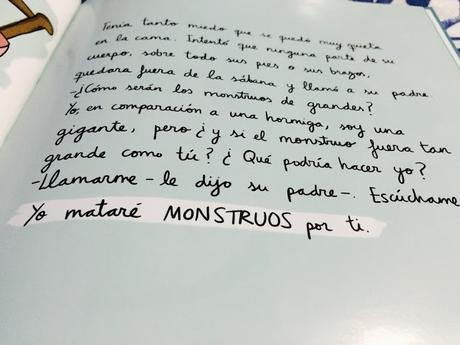 Tenía tanto miedo que se quedó muy quieta
en la cama. Intentó que ninguna parte de su
cuerpo, sobre todo sus pies o sus brazos,
quedara fuera de la sábana y llamó a su padre.
-¿Cómo serán los monstruos de grandes?
Yo, en comparación a una hormiga, soy una
gigante, pero ¿y si el monstruo fuera tan
grande como tú? ¿Qué podría hacer yo?
-Llamarme - le dijo su padre-. Escúchame
Yo mataré MONSTRUOS por ti.